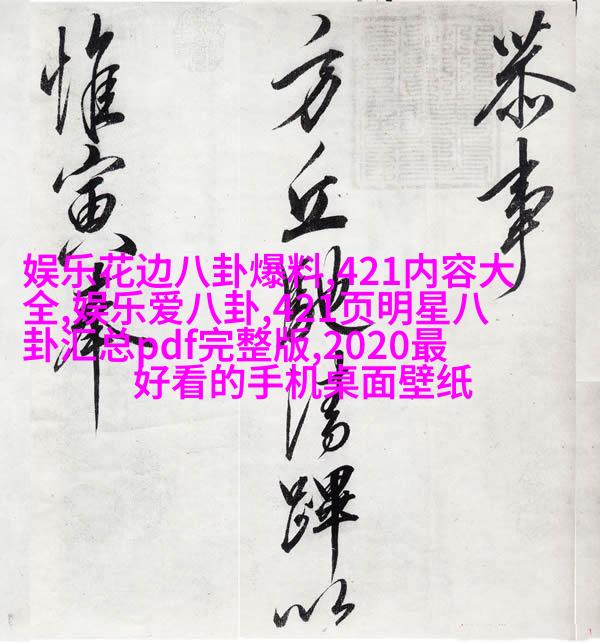 恭事
方丘馳清蹕以
惟寅奉
娱乐花边八卦爆料,421内容大
全,娱乐爱八卦,421页明星八
卦汇总pdf完整版,2020最
好看的手机桌面壁纸